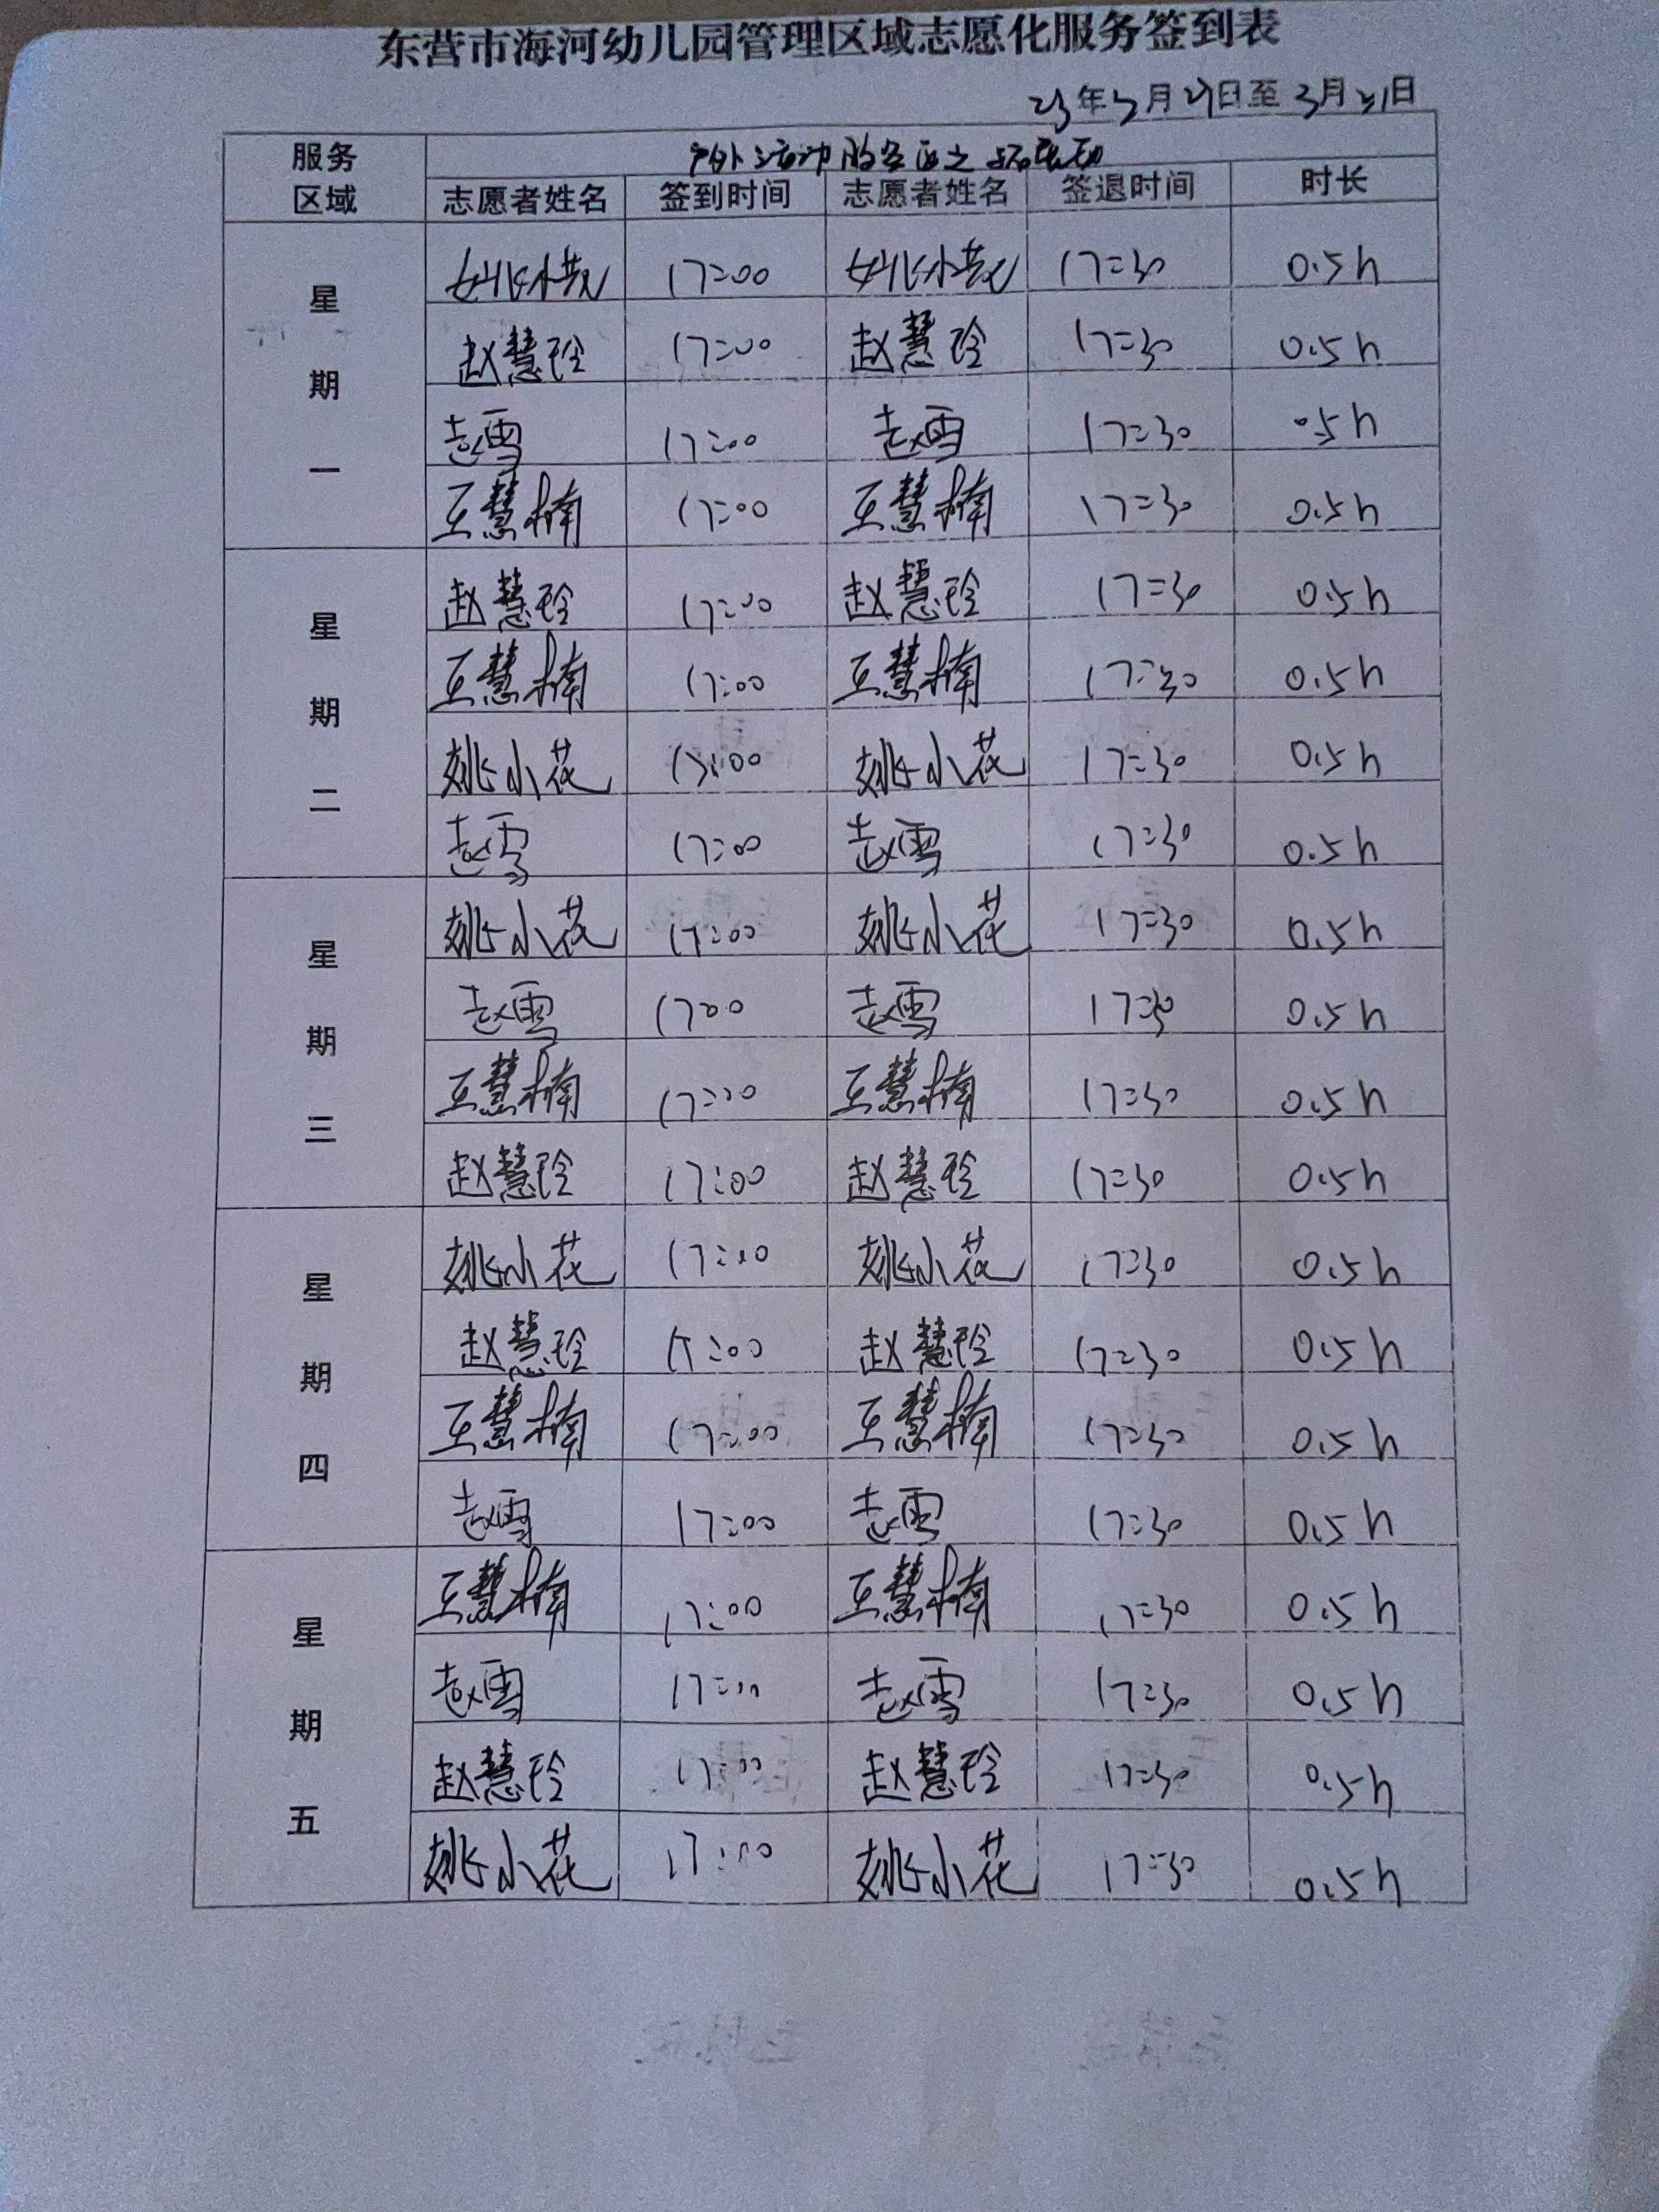 东营市海河幼儿园管理区域志愿化服务签到表
23年3月27日至3月31日
服务区域 户外活动服务区之
志愿者姓名 签到时间 志愿者姓名 签退时间 时长
星期一
姚小花 17:00 姚小花 17:30 0.5h
赵慧玲 17:00 赵慧玲 17:30 0.5h
赵雪 17:00 赵雪 17:30 0.5h
王慧楠 17:00 王慧楠 17:30 0.5h
星期二
赵慧玲 17:00 赵慧玲 17:30 0.5h
王慧楠 17:00 王慧楠 17:30 0.5h
姚小花 17:00 姚小花 17:30 0.5h
赵雪 17:00 赵雪 17:30 0.5h
星期三
姚小花 17:00 姚小花 17:30 0.5h
赵雪 17:00 赵雪 17:30 0.5h
王慧楠 17:00 王慧楠 17:30 0.5h
赵慧玲 17:00 赵慧玲 17:30 0.5h
星期四
姚小花 17:00 姚小花 17:30 0.5h
赵慧玲 17:00 赵慧玲 17:30 0.5h
王慧楠 17:00 王慧楠 17:30 0.5h
赵雪 17:00 赵雪 17:30 0.5h
星期五
王慧楠 17:00 王慧楠 17:30 0.5h
赵雪 17:00 赵雪 17:30 0.5h
赵慧玲 17:00 赵慧玲 17:30 0.5h
姚小花 17:00 姚小花 17:30 0.5h